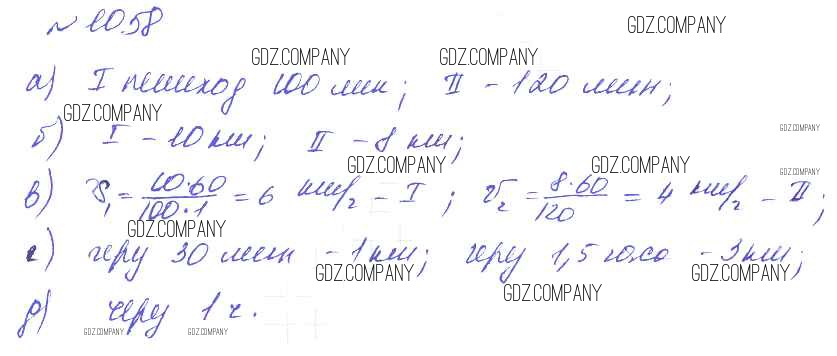 № 10.58 GDZ.COMPANY
GDZ.COMPANY GDZ.COMPANY
а) I пешеход 100 мин; II - 120 мин;
GDZ.COMPANY
б) I - 10 км; II - 8 км; GDZ.COMPANY
GDZ.COMPANY GDZ.COMPANY GDZ.COMPANY
в) V₁ = 10·60/100·1 = 6 км/г - I; V₂ = 8·60/120 = 4 км/г - II;
GDZ.COMPANY
г) черу 30 мин - 1 км; черу 1,5 часа - 3 км;
GDZ.COMPANY GDZ.COMPANY
GDZ.COMPANY
д) черу 1 ч.
GDZ.COMPANY GDZ.COMPANY